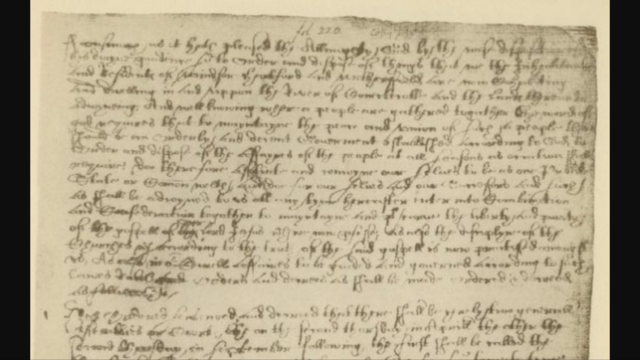 fol 220
as it hath pleased the Allmighty God by the wise
his diuyne so to Order and dispose of things that we the Inhabitants
and Residents of Windsor Harteford and Wethersfield are now
and dwelling in and vppon the River of Conectecotte and the Lands thereunto
adioyneing And well knowing where a people are gathered togather the word of
god requires that to mayntayne the peace and vnion of such a people there
should be an orderly and decent Gouerment established according to God to
order and dispose of the affayres of the people at all seasons as occation shall
require doe therefore assotiate and conioyne our selues to be as one
State or Comonwelth and doe for our selues and our Successors and such
as shall be adioyned to vs att any tyme hereafter enter into Combination
and Confederation togather to mayntayne and the liberty and purity
of the gospell of our Lord Jesus we now as also the disciplyne of the
Churches according to the truth of the said gospell is now practised amongst
vs As also in Ciuell affaires to be guided and gouerned according to such
Lawes Rules Orders and decrees as shall be made ordered & decreed
as followeth
Ordered and decreed that there shall be yerely two generall
Assemblies or Courts the on the second thursday in Aprill the other the
second thursday in September following the first shall be called the